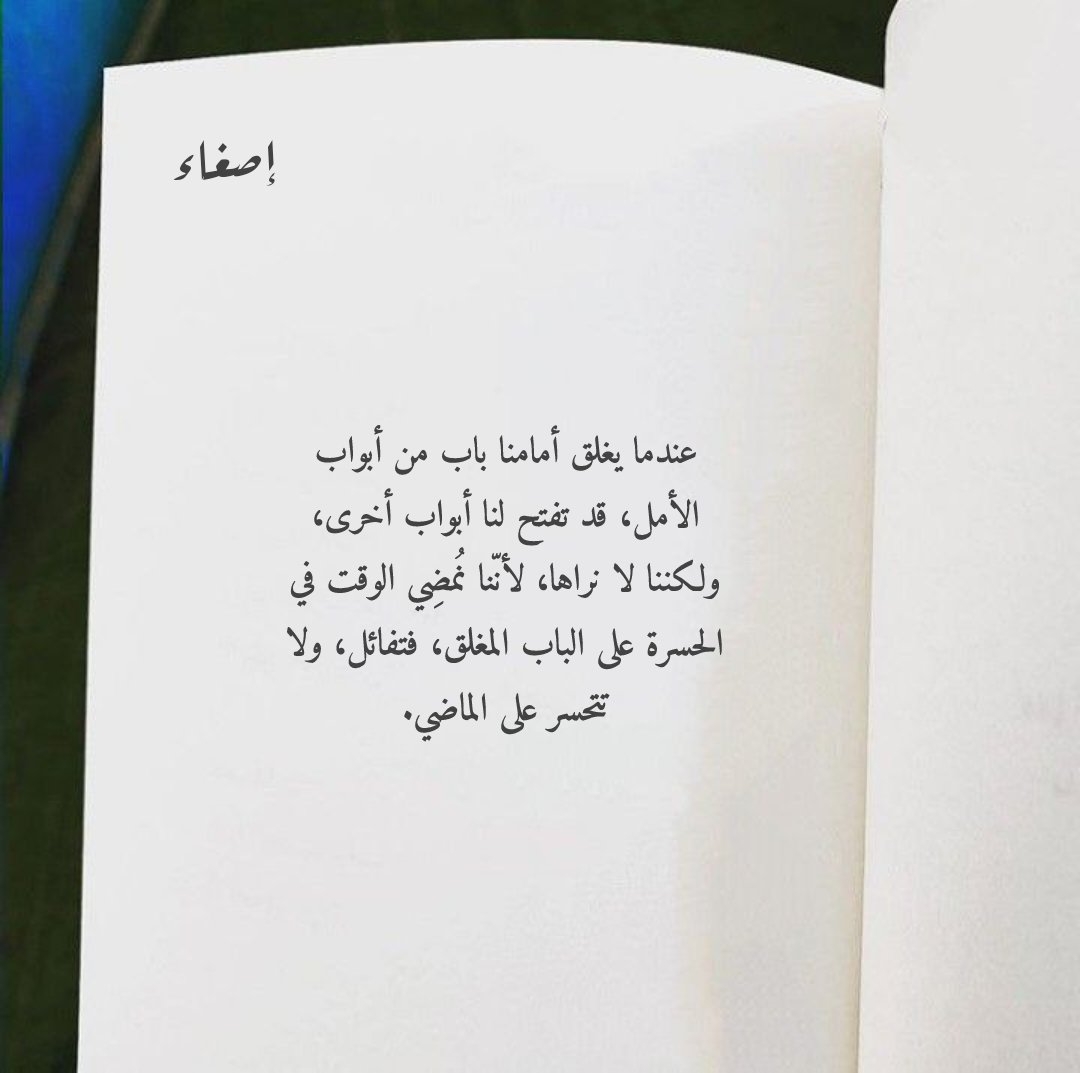 إصغاء
عندما يغلق أمامنا باب من أبواب
الأمل، قد تفتح لنا أبواب أخرى،
ولكننا لا نراها، لأنّنا نُمضِي الوقت في
الحسرة على الباب المغلق، فتفائل، ولا
تتحسر على الماضي.